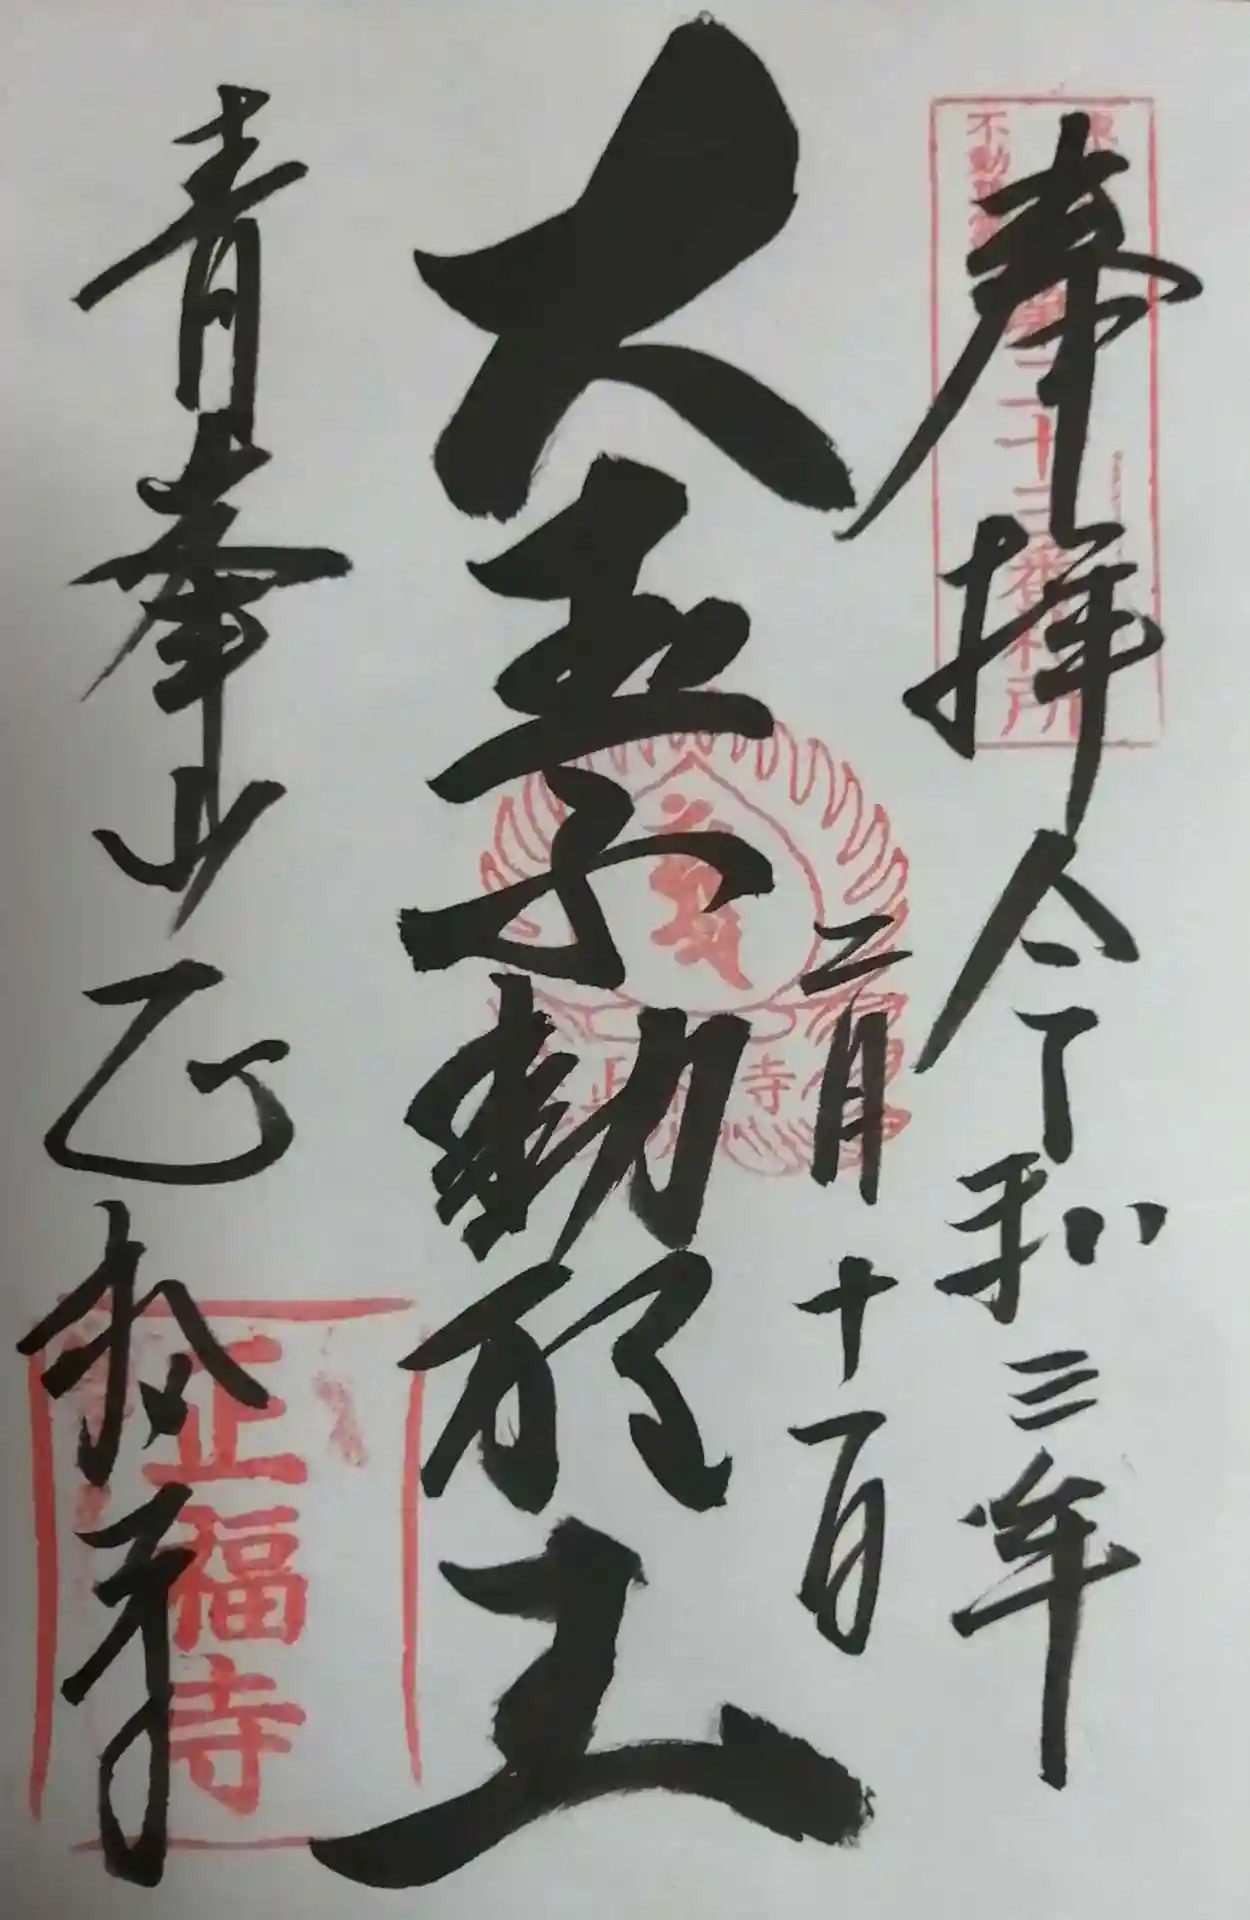 奉拝 令和三年
二月十一日
大聖不動明王
青峯山正福寺
番札所
正福寺
正福寺